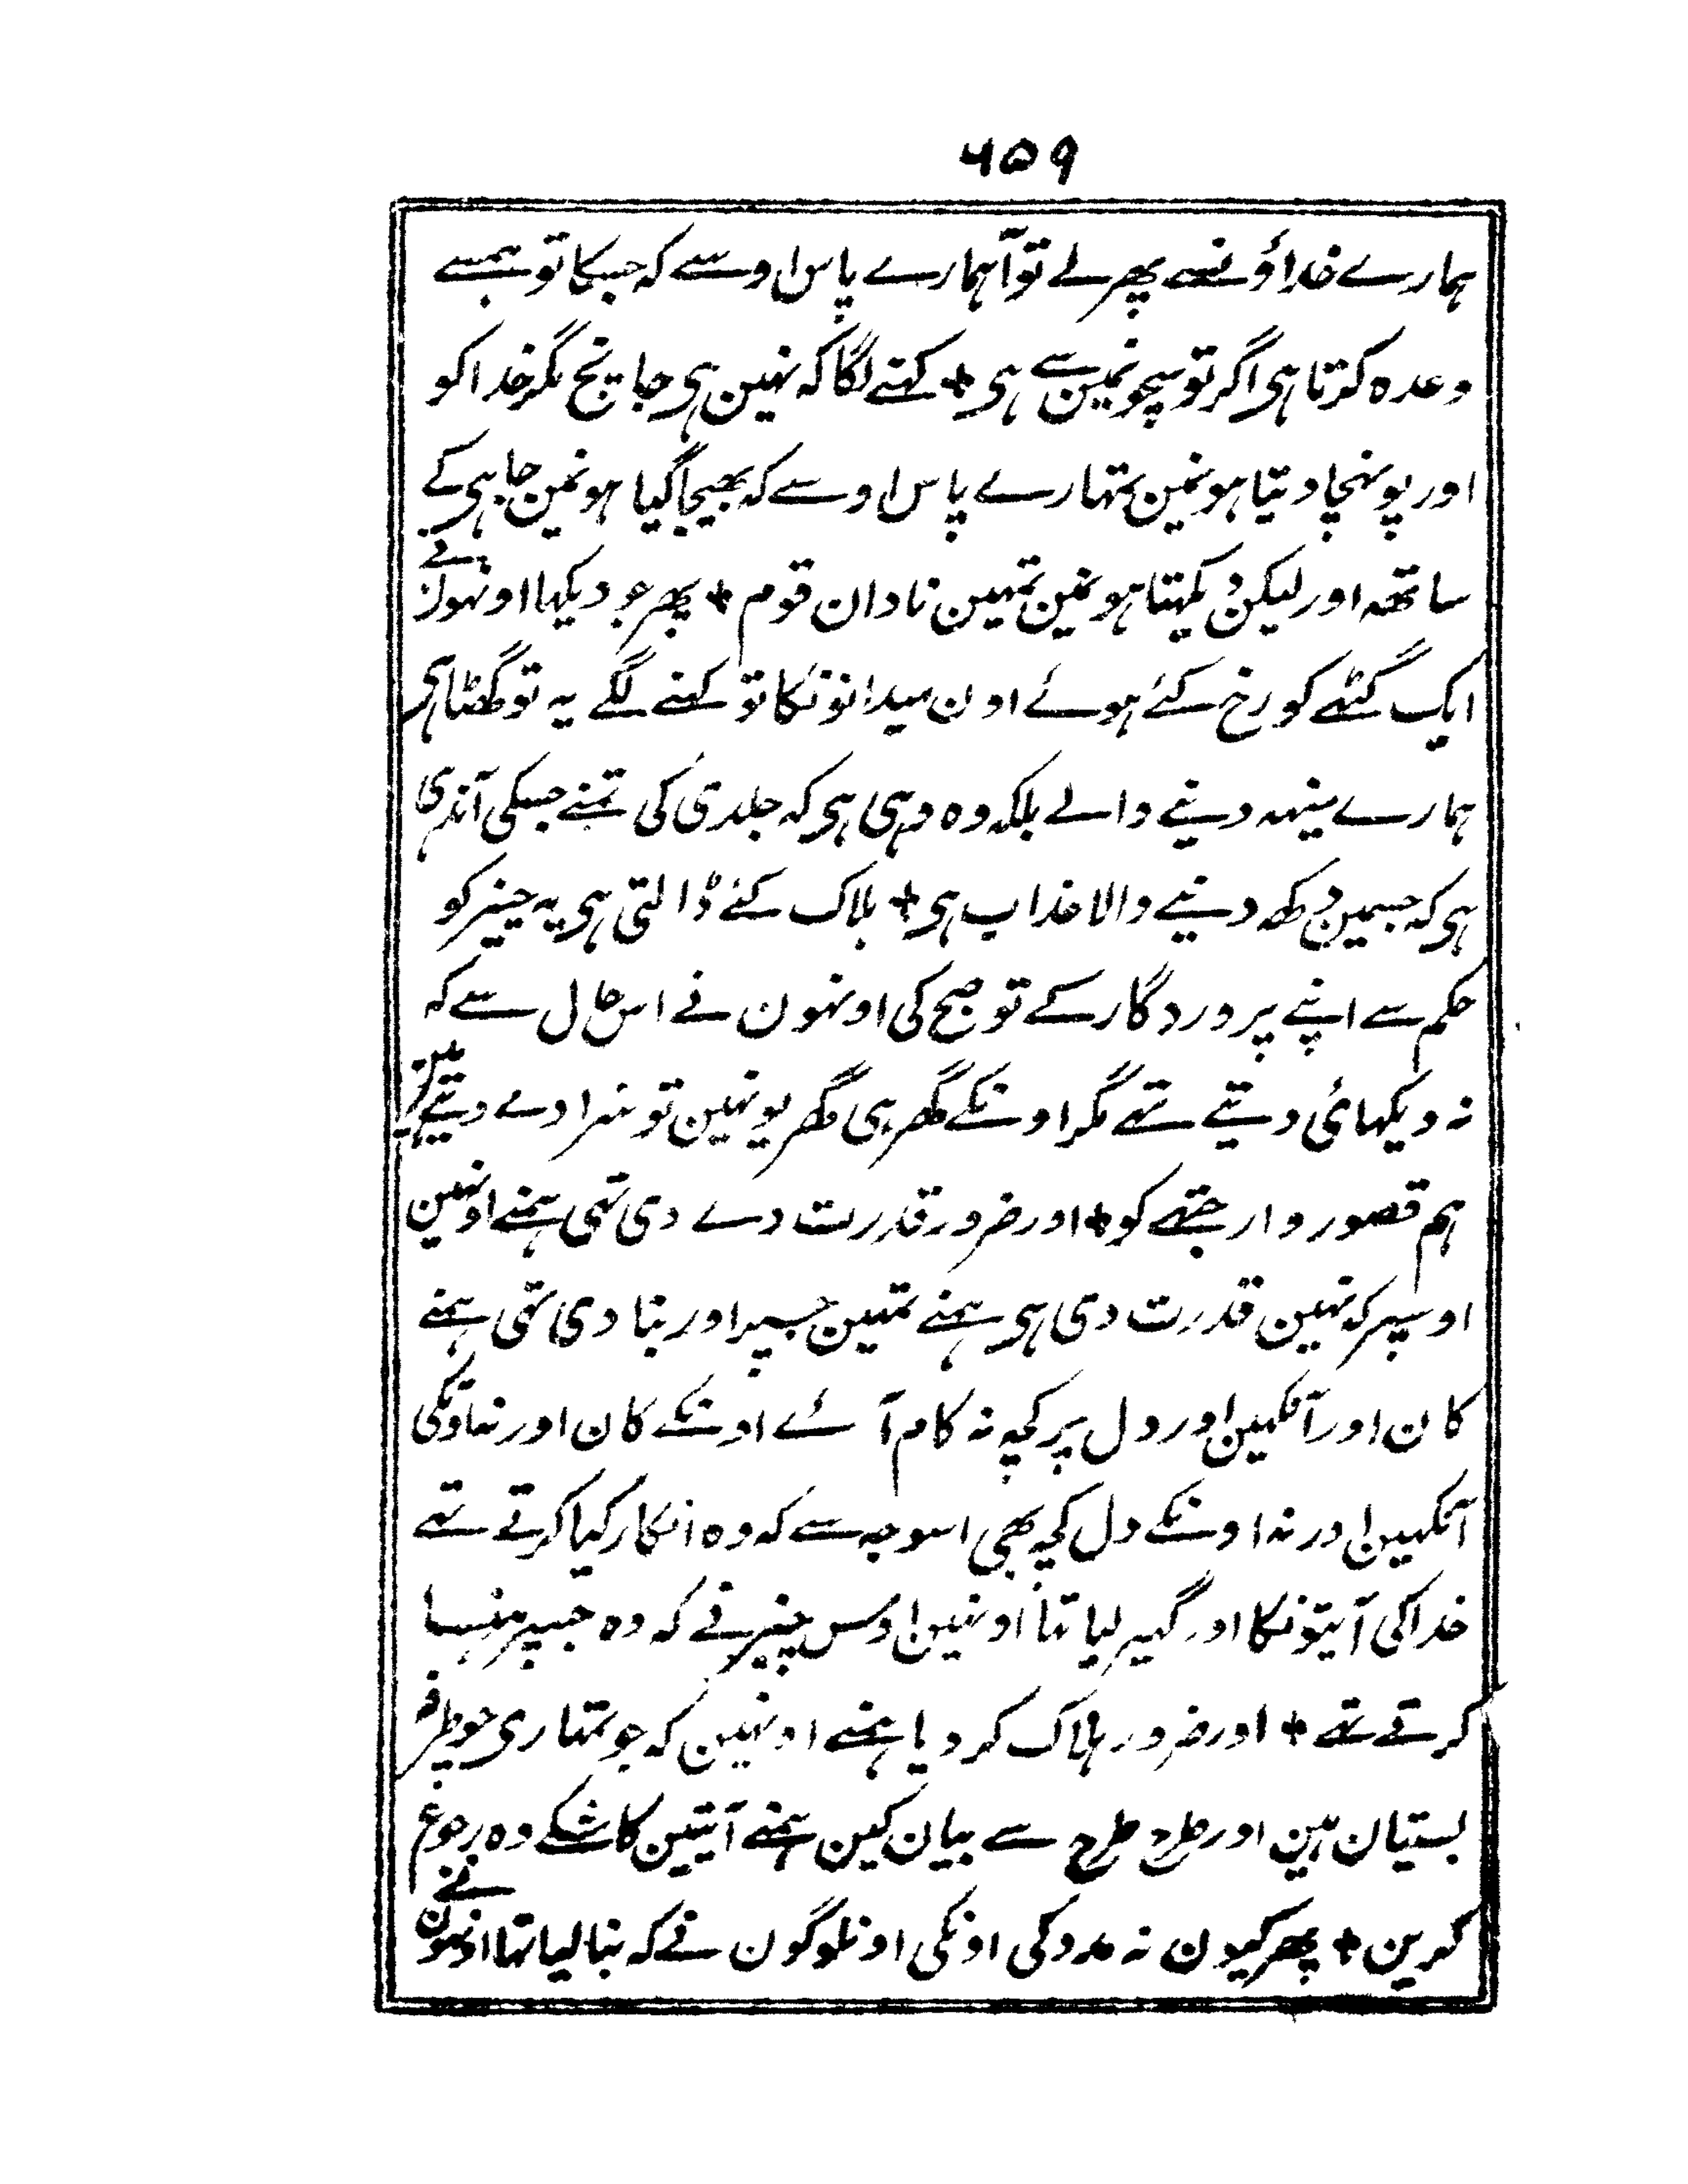 ۶۵۹
ہمارے خداؤنسے پھر لے تو آ ہمارے پاس اوسے کہ جسکا تو ہمسے
وعدہ کرتا ہی اگر تو سچونمین سے ہی + کہنے لگا کہ نہین ہی جانچ مگر خدا کو
اور پونہچا دیتا ہونمین تمہارے پاس اوسے کہ بھیجا گیا ہونمین جاہی کے
ساتھہ اور لیکن دیکہتا ہونمین تمہین نادان قوم + پھر جو دیکہا اونہون نے
ایک گٹھے کو رخ کئے ہوئے اون میدانونکا تو کہنے لگے یہ تو گھٹا ہی
ہمارے مینہہ دینے والے بلکہ وہ وہی ہی کہ جلدی کی تمنے جسکی آندہی
ہی کہ جسمین دکھہ دینے والا عذاب ہی + ہلاک کئے ڈالتی ہی یہ چیز کو
حکم سے اپنے پروردگار کے تو صبح کی اونہون نے اس حال سے کہ
نہ دیکہائی دیتے تھے مگر اونکے گھر ہی گھر یونہین تو سزا دے دیتے ہین
ہم قصور وار جتھے کو + اور ضرور قدرت دے دی تھی ہمنے اونہین
اوسپر کہ نہین قدرت دی ہی ہمنے تمہین جسپر اور بنا دی تھی ہمنے
کان اور آنکہین اور دل پر کچہ نہ کام آئے اونکے کان اور نہ اونکی
آنکہین اور نہ اونکے دل کچہ بھی اسوجہ سے کہ وہ انکار کیا کرتے تھے
خدا کی آیتونکا اور گہیر لیا تھا اونہین اوس چیز نے کہ وہ جسپر ہنسا
کرتے تھے + اور ضرور ہلاک کر دیا ہمنے اونہین کہ جو تمہاری چوطرفہ
بستیان ہین اور طرح طرح سے بیان کین ہمنے آیتین کاشکے وہ رجوع
کرین + پھر کیون نہ مدد کی اونکی اونلوگون نے کہ بنا لیا تھا اونہون نے